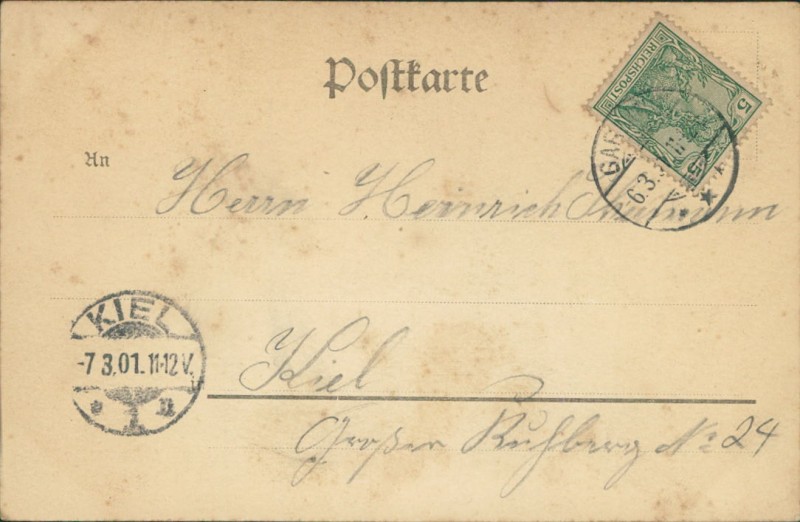 Postkarte
REICHSPOST
5
An
Herrn Heinrich
6.3.
KIEL
-7 3.01. 11-12 V.
* 1 n
Kiel
Großer Kuhberg No 24